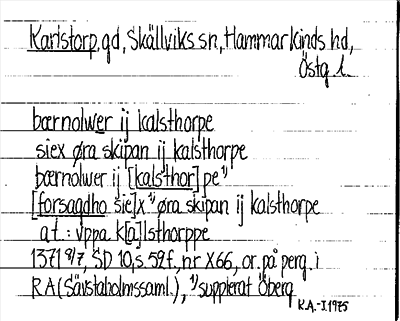 Karlstorp, gd, Skällviks sn, Hammarkinds hd,
Östg l.
bærnolwer ij kalsthorpe
siex øra skipan ij kalsthorpe
bærnolwer ij [kalsthor]pe¹⁾
[forsagdho sie]x¹⁾ øra skipan ij kalsthorpe
at: vppa k[a]lsthorppe
1371 8/7, SD 10, s. 59 f., nr X66, or. på perg. i
RA (Sävstaholmssaml.), ¹⁾supplerat Öberg
K.A.-J. 1975